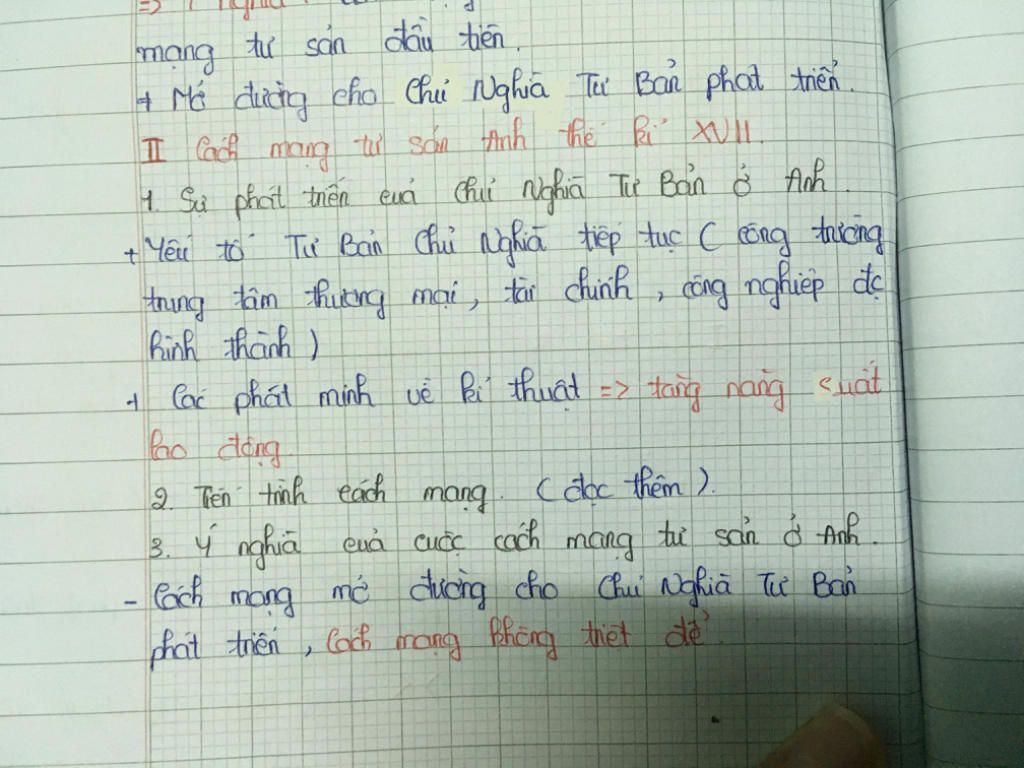 => Ý nghĩa
mạng tư sản đầu tiên.
+ Mở đường cho Chủ Nghĩa Tư Bản phát triển.
II Cách mạng tư sản Anh thế kỉ XVII.
1. Sự phát triển của Chủ Nghĩa Tư Bản ở Anh.
+ Yếu tố Tư Bản Chủ Nghĩa tiếp tục ( công trường
trung tâm thương mại, tài chính, công nghiệp đc
hình thành )
+ Các phát minh về kĩ thuật => tăng năng suất
lao động
2. Tiến trình cách mạng. ( đọc thêm ).
3. Ý nghĩa của cuộc cách mạng tư sản ở Anh.
- Cách mạng mở đường cho Chủ Nghĩa Tư Bản
phát triển, Cách mạng không triệt để.